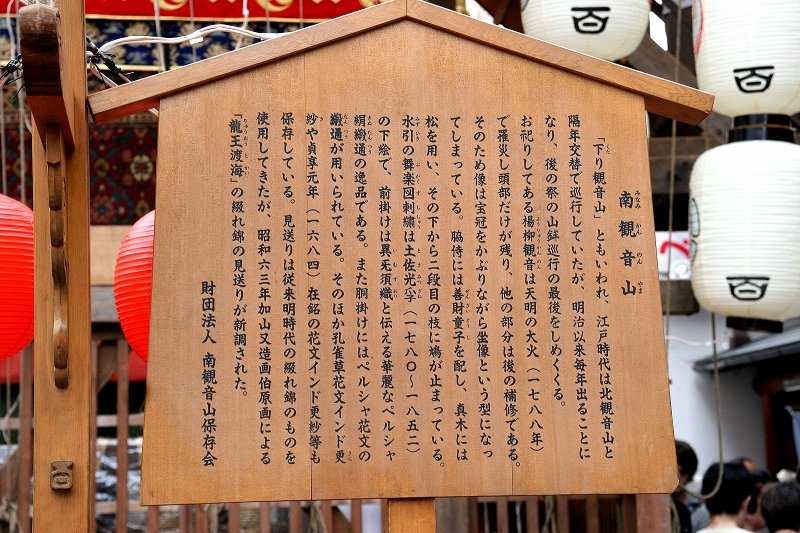 南観音山
「下り観音山」ともいわれ、江戸時代は北観音山と
隔年交替で巡行していたが、明治以来毎年出ることに
なり、後の祭の山鉾巡行の最後をしめくくる。
お祀りしてある楊柳観音は天明の大火（一七八八年）
で罹災し頭部だけが残り、他の部分は後の補修である。
そのため像は宝冠をかぶりながら坐像という型になっ
てしまっている。脇侍には善財童子を配し、真木には
松を用い、その下から二段目の枝に鳩が止まっている。
水引の舞楽図刺繍は土佐光孚（一七八〇～一八五二）
の下絵で、前掛けは異旡須織と伝える華麗なペルシャ
絹緞通の逸品である。また胴掛けにはペルシャ花文の
緞通が用いられている。そのほか孔雀草花文インド更
紗や貞享元年（一六八四）在銘の花文インド更紗等も
保存している。見送りは従来明時代の綴れ錦のものを
使用してきたが、昭和六三年加山又造画伯原画による
「龍王渡海」の綴れ錦の見送りが新調された。
財団法人 南観音山保存会
百
百
百